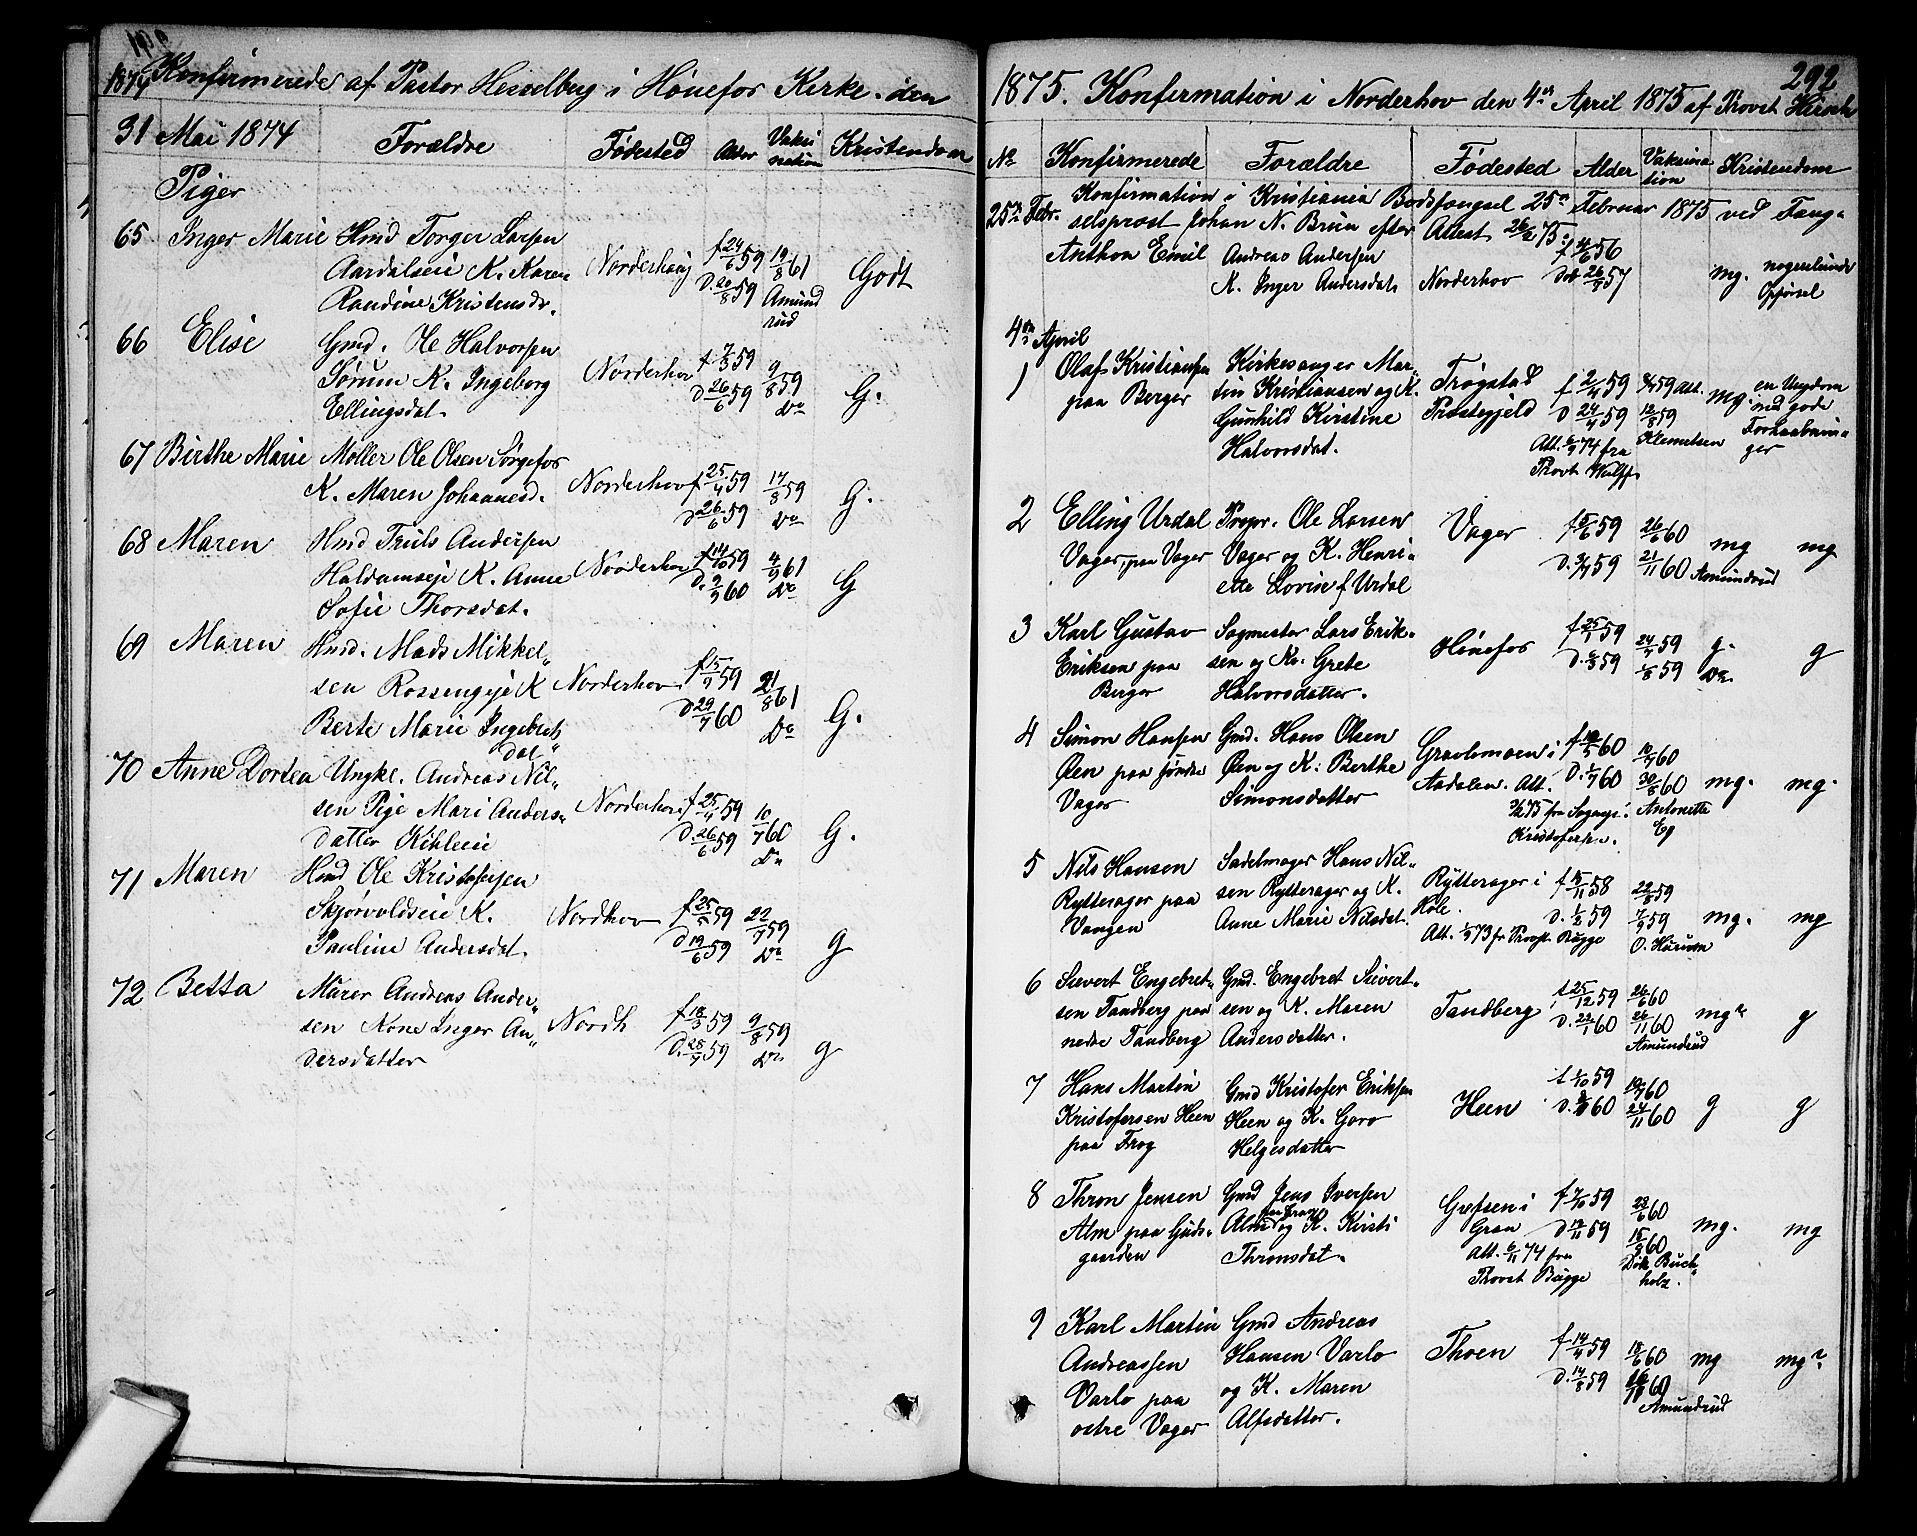 1874 Konfirmerede af Pastor Hesselberg i Hønefos Kirke den
31 Mai 1874 Forældre Fødested Alder Vakci
nation Kristendom
Piger
65 Inger Marie Hmd Torger Larsen
Aardalseie K. Karen
Randine Kristensdr.
Norderhaug f 24/6 59 19/8 61
D. 20/8 59 Amund
rud
Godt
66 Elise Gmd. Ole Halvorsen
Sørum K. Ingeborg
Ellingsdat.
Norderhov f 7/3 59 9/8 59
D 26/6 59 Do
G.
67 Birthe Marie Møller Ole Olsen Sørgefos
K. Maren Johannesd.
Norderhov f 25/4 59 17/8 59
D 26/6 59 Do
G.
68 Maren Hmd Truls Andersen
Haldamseje K. Anne
Sofie Thorsdat.
Norderhov f 14/10 59 4/9 61
D. 2/9 60 Do
G
69 Maren Hmd. Mads Mikkel„
sen Rossengeje K
Berte Marie Ingebret
dat„
Norderhov f 15/9 59 21/8 61
D 29/7 60 Do
G.
70 Anne Dortea Ungk. Andreas Nil„
sen Pige Mari Anders„
datter Kihleeie
Norderhov f 25/4 59 10/7 60
D. 26/6 59 Do
G.
71 Maren Hmd Ole Kristofersen
Skjørvoldseie K.
Pauline Andersdat.
Nordhov f 25/5 59 22/7 59
D 19/6 59 Do
g
72 Betta Murer Andreas Ander„
sen Kone Inger An„
dersdatter
Nordh f 18/3 59 9/8 59
D. 28/7 59 Do
g
292
1875. Konfirmation i Norderhov den 4de April 1875 af Provst
No Konfirmerede Forældre Fødested Alder Vaksina
tion Kristendom
25de Febr. Konfirmation i Kristiania Bodsfængsel 25de Februar 1875 ved Fæng„
selsprost Johan N. Brun efter Attest 26/2 75.
Anthon Emil Andreas Andersen
K. Inger Andersdat.
Norderhov f 4/6 56
Døbt 26/9 57
mg. nogenlunde
Opførsel
4de April
1 Olaf Kristiansen
paa Berger
Kirkesanger Mar„
tin Kristiansen og K.
Gunhild Kirstine
Halvorsdat.
Trøgstad
Præstegjeld
f 2/4 59
D 24/4 59
Att. 6/9 74 fra
Provst Wulff.
12/8 59
Klemetsen
mg. en Ungdom
med gode
ger
2 Elling Urdal
Vager, paa Vager
Propr. Ole Larsen
Vager og K. Henri„
ette Lovise f. Urdal
Vager f 5/6 59 26/6 60
D. 3/7 59 21/11 60 Amundrud
mg mg
3 Karl Gustav
Eriksen paa
Berger
Sagmester Lars Erik„
sen og K. Grete
Halvorsdatter.
Hønefos f 25/1 59 24/7 59 g.
D. 6/3 59 1/8 59 Do.
g
4 Simon Hansen
Øen paa søndre
Vager
Gmd. Hans Olsen
Øen og K. Berthe
Simonsdatter
i
Aadalen. Att.
f 19/5 60 10/7 60
D. 1/7 60 30/8 60 mg. mg.
75 fra Sognepr.
Kristofersen. Antonette
Eg
5 Nils Hansen
Rytterager paa
Vangen
Sadelmager Hans Nil„
sen Rytterager og K.
Anne Marie Nilsdat.
Rytterager i
Hole.
Att. 1/9 73 fr Provst Bugge
f 15/11 58 22/8 59
D. 1/3 59 7/9 59 mg. mg
O. Hurum
6 Sievert Engebret„
sen Tandberg paa
nedre Tandberg
Gmd. Engebret Sievert„
sen og K. Maren
Andersdatter.
Tandberg f 25/12 59 26/6 60
D. 22/1 60 26/11 60 mg? g
Amundrud
7 Hans Martin
Kristofersen Heen
paa Frog
Gmd Kristofer Eriksen
Heen og K. Goro
Helgesdatter
Heen f 5/10 59 19/7 60
D. 60 24/11 60
g g
8 Thron Jensen
Alm paa Guds„
gaarden
Gmd Jens Iversen
Alm og K. Kirsti
Thronsdat.
Grefsen i
Gran
Att. 6/11 74 fra
Provst Bugge
f 7/10 59 23/6 60
D 17/11 59 15/9 60
Dok Buch„
holz.
mg. mg
9 Karl Martin
Andreassen
Varlo paa
østre Vager
Gmd Andreas
Hansen Varlo
og K. Maren
Alfsdatter.
Thoen f 14/4 59 18/6 60
D. 14/8 59 26/11 60
Amundrud
mg mg?